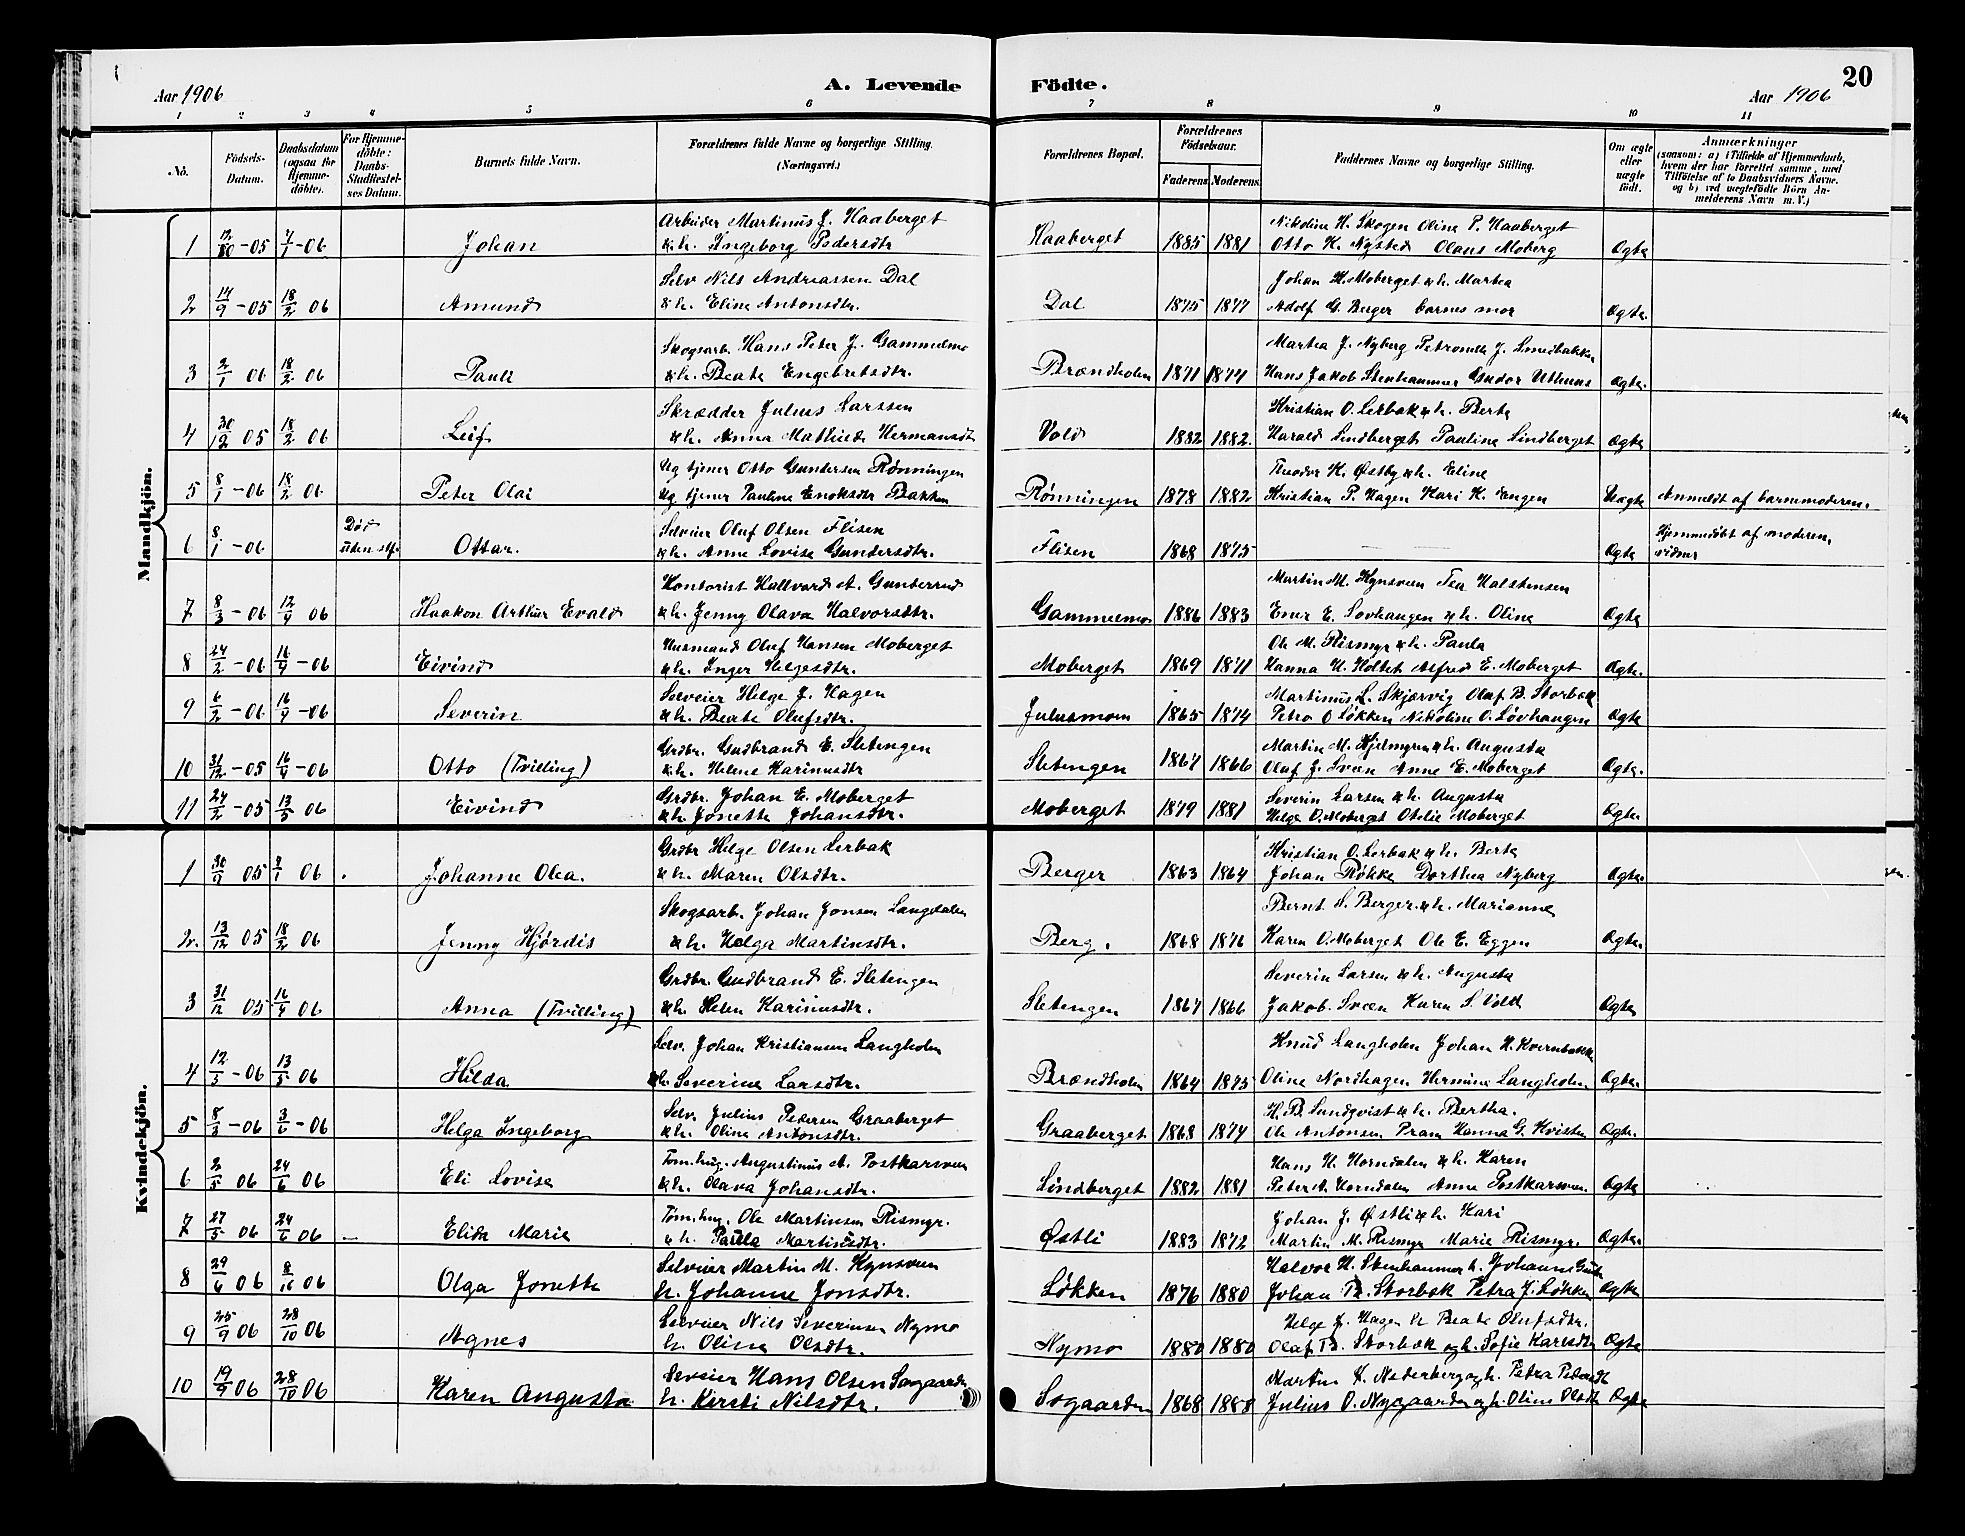 Aar 1906 A. Levende Födte. Aar 1906 20
1 2 3 4 5 6 7 8 9 10 11
No. Födsels-Datum. Daabsdatum (ogsaa for Hjemme-döbte). For Hjemme-döbte: Daabs-Stadfæstelses Datum. Barnets fulde Navn. Forældrenes fulde Navne og borgerlige Stilling. (Næringsvei.) Forældrenes Bopæl. Forældrenes Födselsaar. Faderens. Moderens. Faddernes Navne og borgerlige Stilling. Om ægte eller uægte födt. Anmærkninger (saasom: a) i Tilfælde af Hjemmedaab, hvem der har forrettet samme, med Tilföielse af to Daabsvidners Navne, og b) ved uægtefödte Börn Anmelderens Navn m. V.)
Mandkjön.
Arbeider Martinus J. Haaberget Nikoline H. Skogen Oline P. Haaberget
1 -05 7/1-06 Johan &h. Ingeborg Pedersdtr Haaberget 1885 1881 Otto K. Nysted Olaus Moberg Ægte
Selv Nils Andreassen Dal Johan H. Moberget &h. Martea
2 14/9-05 18/2 06 Amund &h. Eline Antonsdtr. Dal 1875 1877 Adolf G. Berger barnes mor Ægte
Skogsarb. Hans Peter J. Gammelmo Martea J. Nyberg Petronelle J. Smedbakken
3 2/1 06 18/2 06 Pauli &h. Beate Engebretsdtr. Brændholen 1871 1874 Hans Jakob Stenhammer Gudor Uthuus Ægte.
Skrædder Julius Larssen Kristian O. Lerbak &h. Berte
4 30/12 05 18/2 06 Leif &h. Anna Mathilde Hermansdt Vold 1882 1882. Harald Lindberget Pauline Lindberget Ægte
Ug tjener Otto Gundersen Rønningen Theodor K. Østby &h. Eline
5 8/1-06 18/2 06 Peter Olai Ug tjener Pauline Enoksdtr Bakken Rønningen 1878 1882 Kristian P. Hagen Kari K. Engen Uægte Anmeldt af barnemoderen.
Selveier Oluf Olsen Flisen
6 8/1-06 Død uden stf. Ottar. &h. Anne Lovise Gundersdtr. Flisen 1868 1875 Ægte Hjemmedøbt af moderen, vidner
Kontorist Hallvard A. Gunterrud Martin M. Kynsveen Tea Halstensen
7 8/3-06 12/4 06 Haakon Arthur Evald &h. Jenny Olava Halvorsdtr. Gammelmo 1886 1883 Ener E. Lovhaugen &h. Oline Ægte
Husmand Oluf Hansen Moberget Ole M. Rismyr &h. Paula
8 24/2-06 16/4-06 Eivind &h. Inger Helgesdtr. Moberget 1869 1871 Hanna H. Holtet Alfred E. Moberget Ægte.
Selveier Helge J. Hagen Martinus L. Skjærvig Oluf B. Storbæk
9 6/2-06 16/4-06 Severin &h. Beate Olufsdtr. Julusmoen 1865 1874 Petra O Løkken Nikoline O. Lövhaugen Ægte
Grdbr. Gudbrand E. Sletengen Martin M. Hjelmyren &h. Augusta
10 31/12-05 16/4-06 Otto (Tvilling) &h. Helene Karinusdtr Sletengen 1867 1866 Oluf J. Sveen Anne E. Moberget Ægte.
Grdbr. Johan E. Moberget Severin Larsen &h. Augusta
11 24/2-05 13/5 06 Eivind &h. Jonette Johansdtr. Moberget 1879 1881 Helge O. Moberget Otelie Moberget Ægte.
Kvindekjön.
Grdbr Helge Olsen Lerbak Kristian O. Lerbak &h. Berte
1 30/9 05 7/1 06 Johanne Olea. &h. Maren Olsdtr. Berger 1863 1864 Johan Røkke Dorthea Nyberg Ægte
Skogsarb. Johan Jonsen Langdalen Bernt S. Berger. &h. Marianne
2. 13/12 05 18/2 06 Jenny Hjørdis &h. Helga Martinsdtr. Berg. 1868 1876 Karen O. Moberget Ole E. Eggen Ægte.
Grdbr. Gudbrand E. Sletengen Severin Larsen &h. Augusta
3 31/12 05 16/4 06 Anna (Tvilling) &h. Helen Karinusdtr. Sletengen 1867 1866 Jakob. Sveen Karen S. Vold Ægte
Selv. Johan Kristiansen Langholen Knud Langholen Johan H. Kvernbakken
4 12/3-06 13/5 06 Hilda &h. Severine Larsdtr. Brændholen 1864 1875 Oline Nordhagen Hermine Langholen Ægte.
Selv. Julius Pedersen Graaberget H. B. Lundqvist &h. Bertha.
5 8/3-06 3/6-06 Helga Ingeborg &h. Oline Antonsdtr. Graaberget 1868 1874 Ole Antonsen Pram Hanna G. Kvisten Ægte.
Tøm.hug. Augustinus A. Postkarsveen Hans H. Horndalen &h. Karen
6 2/5 06 24/6 06 Eli Lovise &h. Olava Johansdtr. Lindberget 1882 1881 Peter A. Horndalen Anne Postkarsveen. Ægte
Tøm.hug. Ole Martinsen Rismyr. Johan J. Østli &h. Kari
7 27/5 06 24/6 06 Elida Marie &h. Paula Martinsdtr. Østli 1883 1872 Martin M. Rismyr Marie Rismyr. Ægte.
Selveier Martin M. Kynsveen Halvor H. Stenhammer h. Johanne
8 29/6 06 06 Olga Jonette h. Johanne Jonsdtr. Løkken 1876 1880 Johan B. Storbæk Petra J. Løkken Ægte
Selveier Nils Severinsen Nymo Helge J. Hagen h Beate Olufsdtr.
9 25/9 06 28/10 06 Agnes h. Oline Olsdtr. Nymo 1880 1880 Olaf B. Storbæk og h. Sofie Karlsdtr Ægte
Seveier Hans Olsen Sogaarden Martin K. Nederberg og h. Petra
10 19/9 06 28/10 06 Karen Augusta h. Kirsti Nilsdtr. Sogaarden 1868 1888 Julius O. Nygaarden og h. Oline Olsdtr Ægte